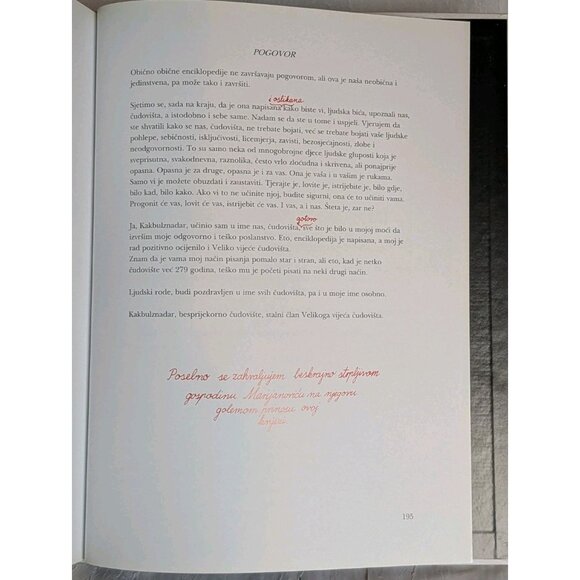 POGOVOR
Obično obične enciklopedije ne završavaju pogovorom, ali ova je naša neobična i
jedinstvena, pa može tako i završiti.
i oslikana
Sjetimo se, sada na kraju, da je ona napisana kako biste vi, ljudska bića, upoznali nas,
čudovišta, a istodobno i sebe same. Nadam se da ste u tome i uspjeli. Vjerujem da
ste shvatili kako se nas, čudovišta, ne trebate bojati, već se trebate bojati vaše ljudske
pohlepe, sebičnosti, isključivosti, licemjerja, zavisti, bezosjećajnosti, zlobe i
neodgovornosti. To su samo neka od mnogobrojne djece ljudske gluposti koja je
sveprisutna, svakodnevna, raznolika, često vrlo zloćudna i skrivena, ali ponajprije
opasna. Opasna je za druge, opasna je i za vas. Ona je vaša i u vašim je rukama.
Samo vi je možete obuzdati i zaustaviti. Tjerajte je, lovite je, istrijebite je, bilo gdje,
bilo kad, bilo kako. Ako vi to ne učinite njoj, budite sigurni, ona će to učiniti vama.
Progonit će vas, lovit će vas, istrijebit će vas. I vas, a i nas. Šteta je, zar ne?
gotovo
Ja, Kakbulmadar, učinio sam u ime nas, čudovišta, sve što je bilo u mojoj moći da
izvršim moje odgovorno i teško poslanstvo. Eto, enciklopedija je napisana, a moj je
rad pozitivno ocijenilo i Veliko vijeće čudovišta.
Znam da je vama moj način pisanja pomalo star i stran, ali eto, kad je netko
čudovište već 279 godina, teško mu je početi pisati na neki drugi način.
Ljudski rode, budi pozdravljen u ime svih čudovišta, pa i u moje ime osobno.
Kakbulmadar, besprijekorno čudovište, stalni član Velikoga vijeća čudovišta.
Posebno se zahvaljujem beskrajno strpljivom
gospodinu Marijanoviću na njegovu
golemom prinosu ovoj
knjizi.
195